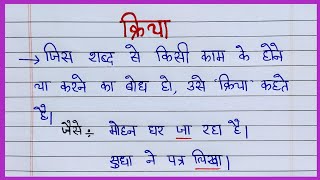 क्रिया
→ जिस शब्द से किसी काम के होने
या करने का बोध हो, उसे 'क्रिया' कहते
है।
जैसे ÷ मोहन घर जा रहा है।
सुधा ने पत्र लिखा।